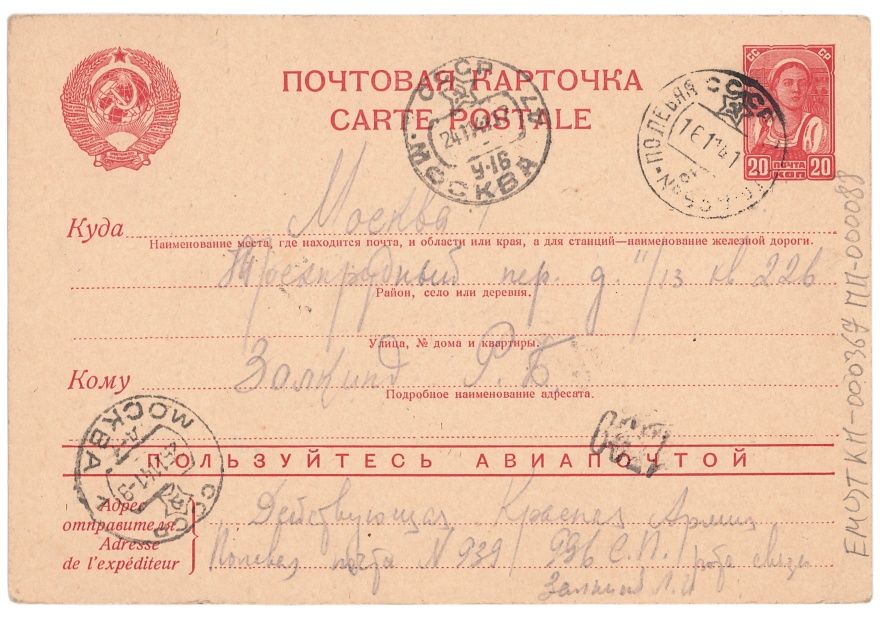 ПОЧТОВАЯ КАРТОЧКА
CARTE POSTALE
СССР
МОСКВА
24.11.41
У-16
ПОЛЕВАЯ
СССР
16 11 41
СС СР
20 ПОЧТА 20
КОП
Куда Москва
Наименование места, где находится почта, и области или края, а для станций—наименование железной дороги.
Трехпрудный пер. д. 11/13 кв 226
Район, село или деревня.
Улица, № дома и квартиры.
Кому Залкинд Р. Б.
Подробное наименование адресата.
МОСКВА
СССР
ПОЛЬЗУЙТЕСЬ АВИАПОЧТОЙ
Адрес отправителя
Adresse de l'expéditeur
Действующая Красная Армия
Полевая почта N 939 / 996 С.П. / рота связи
Залкинд Л. И
ЕМИЗ КП-000367 ПИ-000088